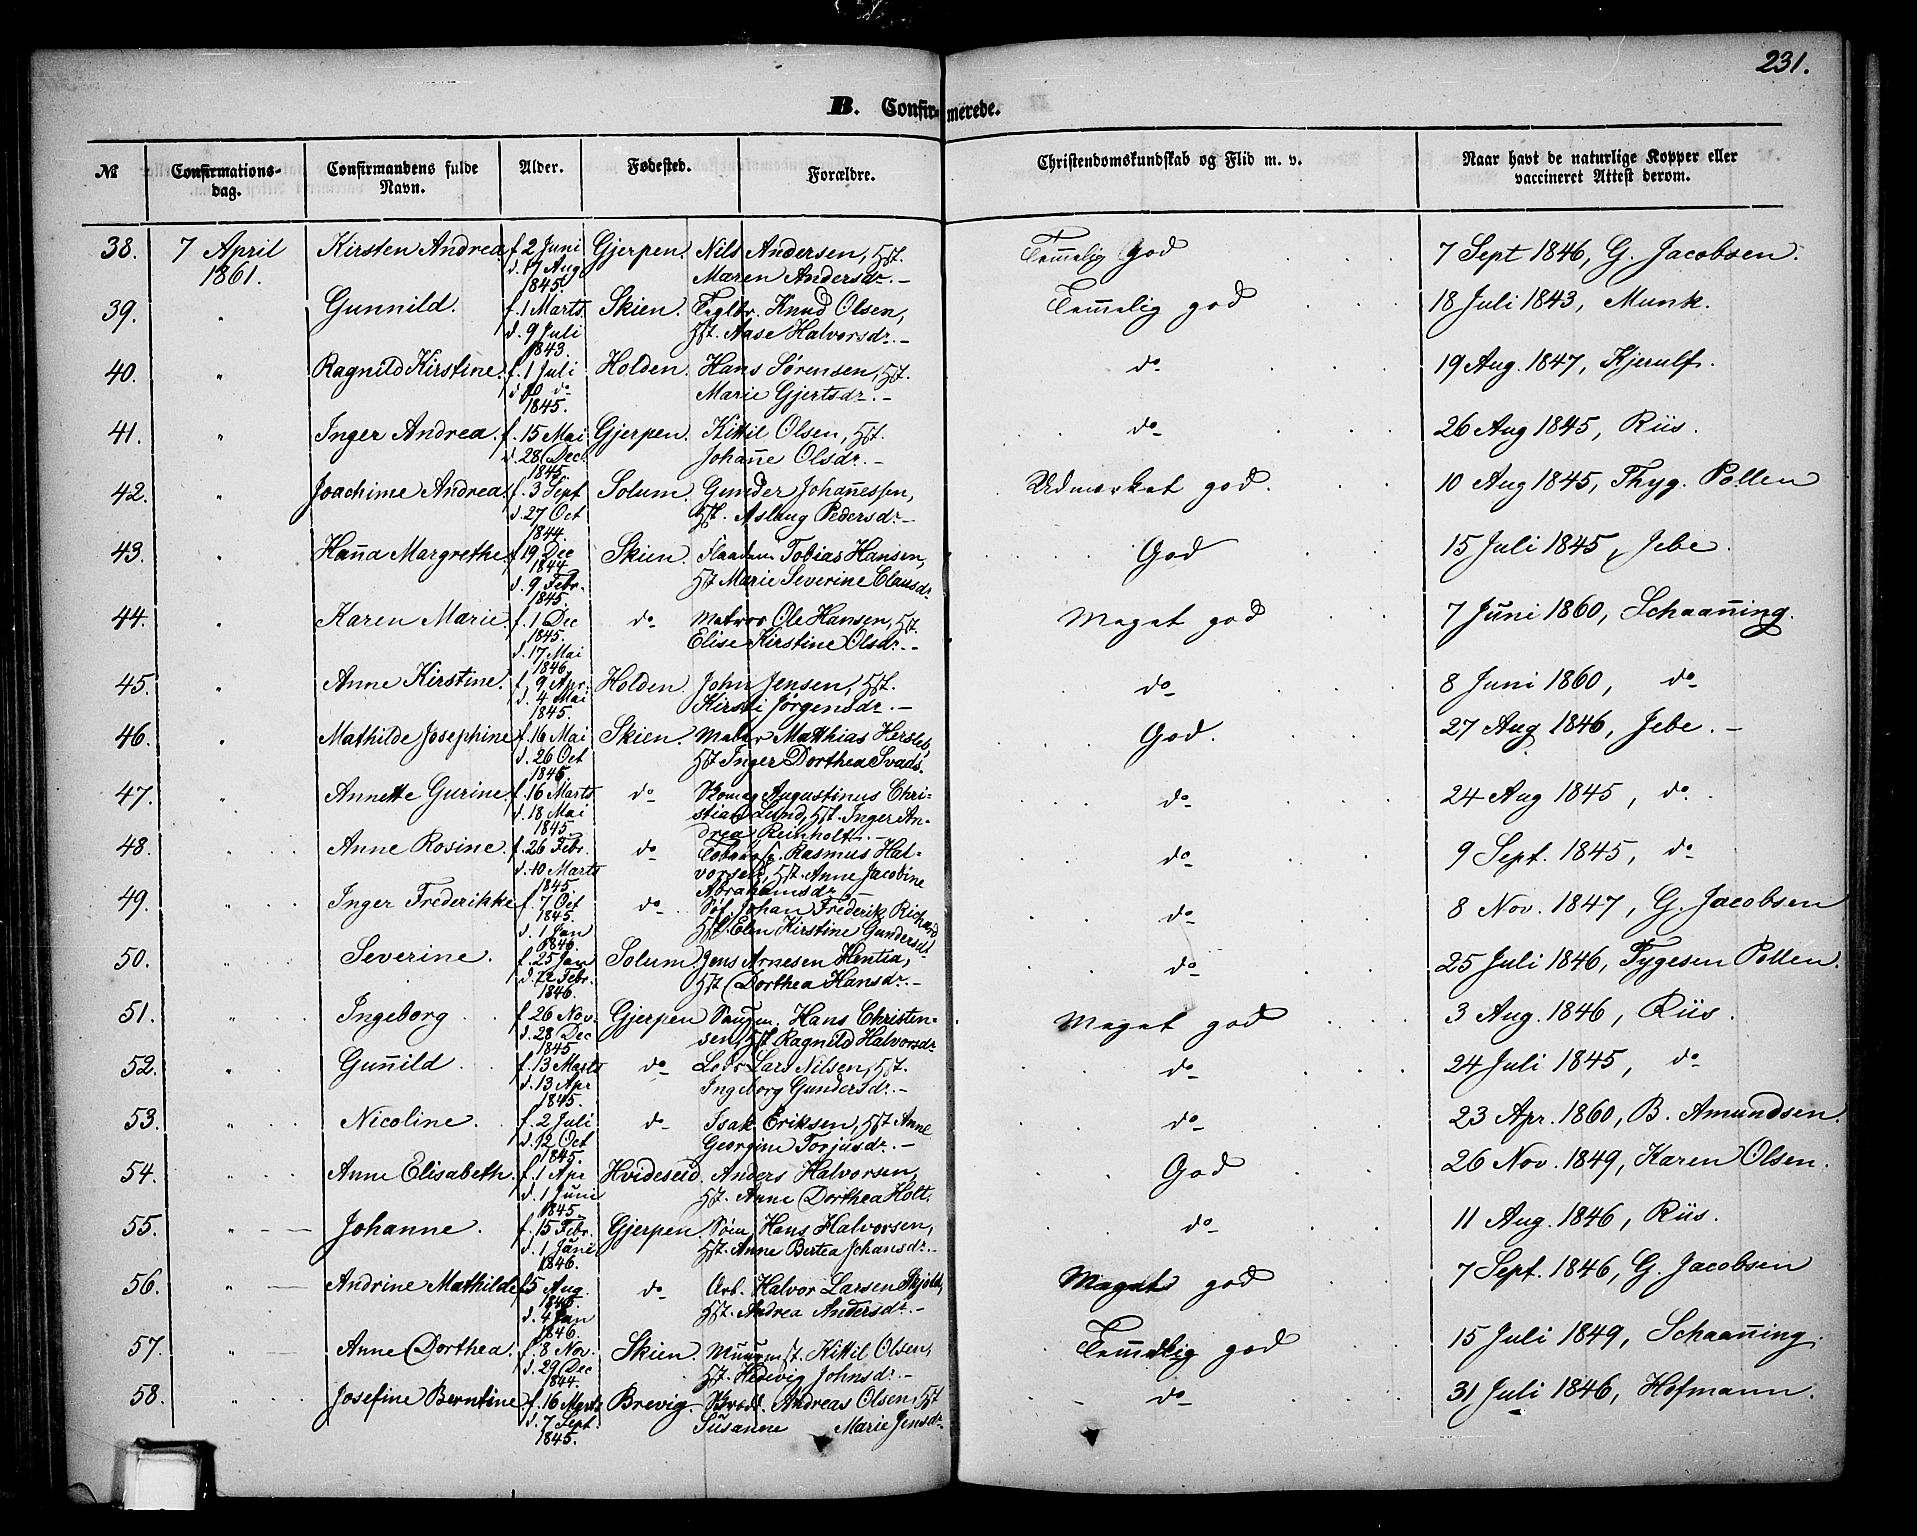 231.
B. Confirmerede.
№ Confirmations-dag. Confirmandens fulde Navn. Alder. Fødested. Forældre. Christendomskundskab og Flid m. v. Naar havt de naturlige Kopper eller vaccineret Attest derom.
38. 7 April Kirsten Andrea f. 2 Juni Gjerpen. Nils Andersen, Hst. Temmelig god 7 Sept 1846, G. Jacobsen.
1861. d. 17 Aug Maren Andersdr. -
1845
39. " Gunnild. f. 1 Marts Skien. Teglbr. Knud Olsen, Temelig god 18 Juli 1843, Munk.
d. 9 Juli Hst. Aase Halvorsdr. -
1843.
40. " Ragnild Kirstine. f. 1 Juli Holden. Hans Sørensen, Hst. do 19 Aug. 1847, Kjerulf.
d. do Marie Gjertsdr. -
1845.
41. " Inger Andrea. f. 15 Mai Gjerpen. Kittil Olsen, Hst. do 26 Aug 1845, Riis.
d. 28 Dec. Johañe Olsdr. -
1845.
42. " Joachime Andrea. f. 3 Sept Solum. Gunder Johañessen, Udmærket god. 10 Aug 1845, Thyg. Pollen
d. 27 Oct Hst. Aslaug Pedersdr. -
1844.
43. " Haña Margrethe. f. 19 Dec Skien. Tobias Hansen, God 15 Juli 1845, Jebe.
1844
d. 9 Febr. Hst Marie Severine Clausdr.
1845.
44. " Karen Marie. f. 1 Dec do Matros Ole Hansen, Hst. Meget god 7 Juni 1860, Schaañing.
1845.
d. 17 Mai Elise Kirstine Olsdr. -
1846.
45. " Anne Kirstine. f. 9 Apr. Holden. John Jensen, Hst. do 8 Juni 1860, do
d. 4 Mai Kirsti Jørgensdr. -
1845.
46. " Mathilde Josephine f. 16 Mai Skien. Maler Matthias Hersleb, God. 27 Aug 1846, Jebe. -
d. 26 Oct Hst Inger Dorthea Svads.
1845.
47. " Annette Gurine f. 16 Marts do Augustinus Chri- do 24 Aug 1845, do.
d. 18 Mai stian Lund, Hst. Inger An-
1845 drea Reinholt. -
48. " Anne Rosine. f. 26 Febr. do Rasmus Hal- do 9 Sept. 1845, do
d. 10 Marts vorsen, Hst. Anne Jacobine
1845 Abrahamsdr. -
49. " Inger Frederikke f. 7 Oct do Søf. Johan Frederik Richard do 8 Nov. 1847, G. Jacobsen
1845.
d. 1 Jan Hst. Elen Kirstine Gundersdr.
1846.
50. " Severine. f. 25 Jan Solum Jens Arnesen Hentia, do 25 Juli 1846, Tygesen Pollen.
d. 22 Febr. Hst Dorthea Hansdr. -
1846.
51. " Ingeborg. f. 26 Nov. Gjerpen Saugm. Hans Christen- Meget god 3 Aug. 1846, Riis.
d. 28 Dec sen, Hst Ragnild Halvorsdr.
1845
52. " Guñild f. 13 Marts do Lars Nilsen, Hst. do 24 Juli 1845, do
d. 13 Apr Ingeborg Gundersdr. -
1845.
53. " Nicoline. f. 2 Juli do Isak Eriksen, Hst Anne do 23 Apr. 1860, B. Amundsen.
d. 12 Oct Georgine Torjusdr. -
1845.
54. " Anne Elisabeth. f. 1 Apr Hvideseid Anders Halvorsen, God 26 Nov. 1849, Karen Olsen.
d. 1 Juni Hst. Anne Dorthea Holt.
1845
55. " Johanne. f. 15 Febr. Gjerpen Søm. Hans Halvorsen, do 11 Aug. 1846, Riis.
d. 1 Juni Hst. Anne Bertea Johansdr. -
1846.
56. " Andrine Mathilde f. 5 Aug. do Arb. Halvor Larsen Meget god 7 Sept. 1846, G. Jacobsen
1845.
d. 4 Jan Hst. Andrea Andersdr. -
1846.
57. " Anne Dorthea. f. 8 Nov. Skien. Muurmst. Kittil Olsen, Temelig god 15 Juli 1849, Schaañing.
d. 29 Dec Hst. Hedvig Johnsdr. -
1844.
58. " Josefine Berntine f. 16 Marts Brevig. Andreas Olsen, Hst do 31 Juli 1846, Hofmann.
d. 7 Sept Susanne Marie Jensdr.
1845.